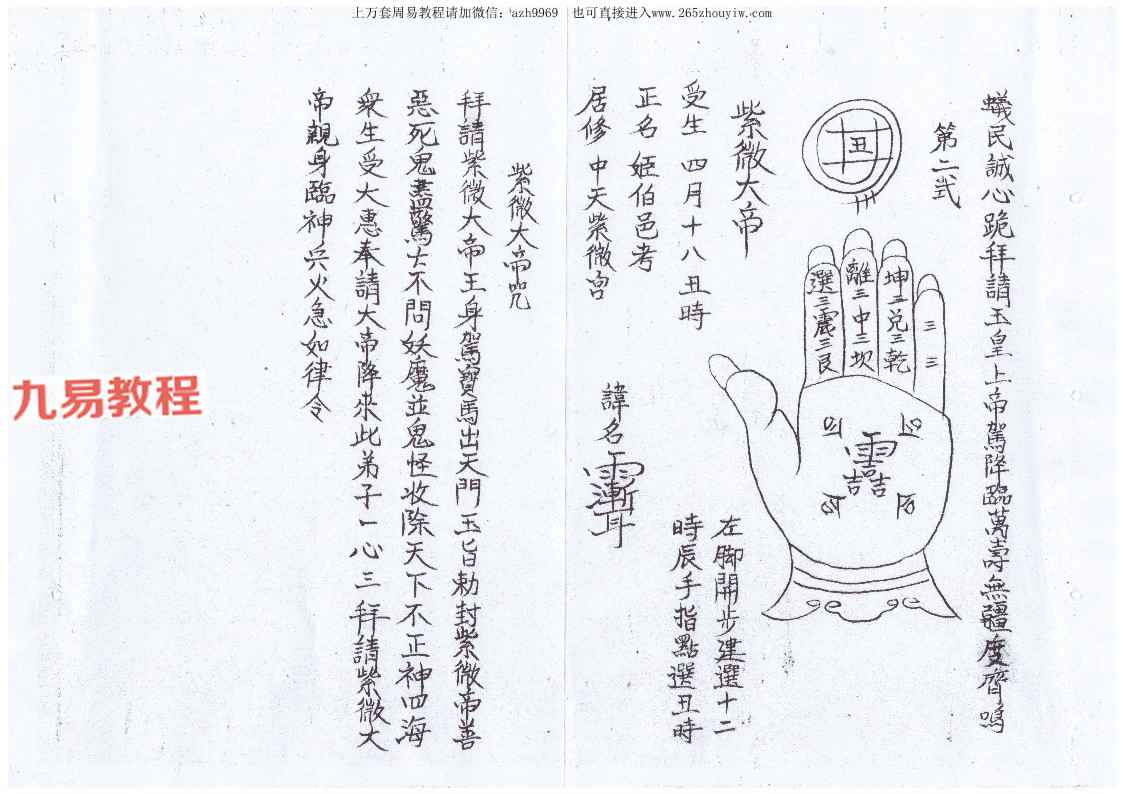 上万套周易教程请加微信：azh9969 也可直接进入www.265zhouyiw.com
蟻民誠心跪拜請玉皇上帝駕降臨萬壽無疆度齊鳴
第二式
丑
坤 兑 乾
離 中 坎
選 震 艮
左脚開步建選十二
時辰手指點選丑時
紫微大帝
受生 四月十八丑時
正名 姬伯邑考
居修 中天紫微宫
諱名
紫微大帝咒
拜請紫微大帝王身駕寶馬出天門玉旨勅封紫微帝善
惡死鬼盡驚大不問妖魔並鬼怪收除天下不正神四海
衆生受大惠奉請大帝降來此弟子一心三拜請紫微大
帝親身臨神兵火急如律令
九易教程